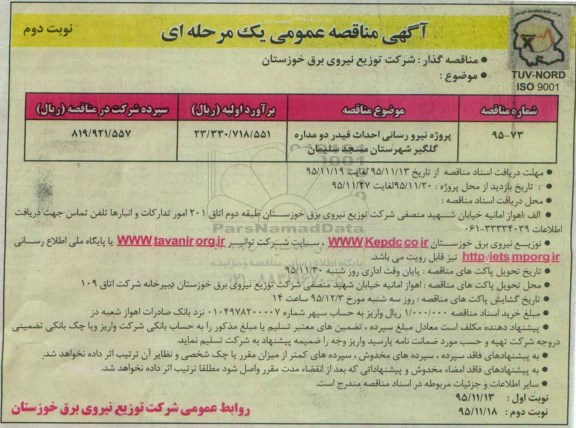 آگهی مناقصه عمومی یک مرحله ای
نوبت دوم
TUV-NORD
ISO 9001
• مناقصه گذار: شرکت توزیع نیروی برق خوزستان
• موضوع:
شماره مناقصه	موضوع مناقصه	برآورد اولیه (ریال)	سپرده شرکت در مناقصه (ریال)
۹۵-۷۳	پروژه نیرو رسانی احداث فیدر دو مداره گلگیر شهرستان مسجد سلیمان	۲۳/۳۳۰/۷۱۸/۵۵۱	۸۱۹/۹۲۱/۵۵۷
• مهلت دریافت اسناد مناقصه از تاریخ ۹۵/۱۱/۱۳ لغایت ۹۵/۱۱/۱۹
• : تاریخ بازدید از محل پروژه : ۹۵/۱۱/۲۰لغایت ۹۵/۱۱/۲۷
• محل دریافت اسناد مناقصه :
• الف :اهواز امانیه خیابان شهید منصفی شرکت توزیع نیروی برق خوزستان طبقه دوم اتاق ۲۰۱ امور تدارکات و انبارها تلفن تماس جهت دریافت
اطلاعات ۳۳۳۳۴۰۳۹-۰۶۱
• توزیع نیروی برق خوزستان WWW.Kepdc.co.ir وسایت شرکت توانیر www.tavanir.org.ir یا پایگاه ملی اطلاع رسانی
http:iets.mporg.ir نیز قابل رویت می باشد.
• تاریخ تحویل پاکت های مناقصه : پایان وقت اداری روز شنبه ۹۵/۱۱/۳۰
• محل تحویل پاکت های مناقصه : اهواز امانیه خیابان شهید منصفی شرکت توزیع نیروی برق خوزستان دبیرخانه شرکت اتاق ۱۰۹
• تاریخ گشایش پاکت های مناقصه : روز سه شنبه مورخ ۹۵/۱۲/۳ ساعت ۱۴
• مبلغ خرید اسناد مناقصه ۱/۰۰۰/۰۰۰ ریال واریز به حساب سپهر شماره ۰۱۰۴۹۷۸۲۰۰۰۰۷ نزد بانک صادرات اهواز شعبه دز
• پیشنهاد دهنده مکلف است معادل مبلغ سپرده ، تضمین های معتبر تسلیم یا مبلغ مذکور را به حساب بانکی شرکت واریز ویا چک بانکی تضمینی
دروجه شرکت تهیه و حسب مورد ضمانت نامه یارسید واریز وجه را ضمیمه پیشنهاد به شرکت تسلیم نماید.
• به پیشنهادهای فاقد سپرده ، سپرده های مخدوش ، سپرده های کمتر از میزان مقرر یا چک شخصی و نظایر آن ترتیب اثر داده نخواهد شد.
• به پیشنهادهای فاقد امضاء مخدوش و پیشنهاداتی که بعد از انقضاء مدت مقرر واصل شود مطلقا ترتیب اثر داده نخواهد شد.
• سایر اطلاعات و جزئیات مربوطه در اسناد مناقصه مندرج است.
نوبت اول : ۹۵/۱۱/۱۳
نوبت دوم : ۹۵/۱۱/۱۸
روابط عمومی شرکت توزیع نیروی برق خوزستان